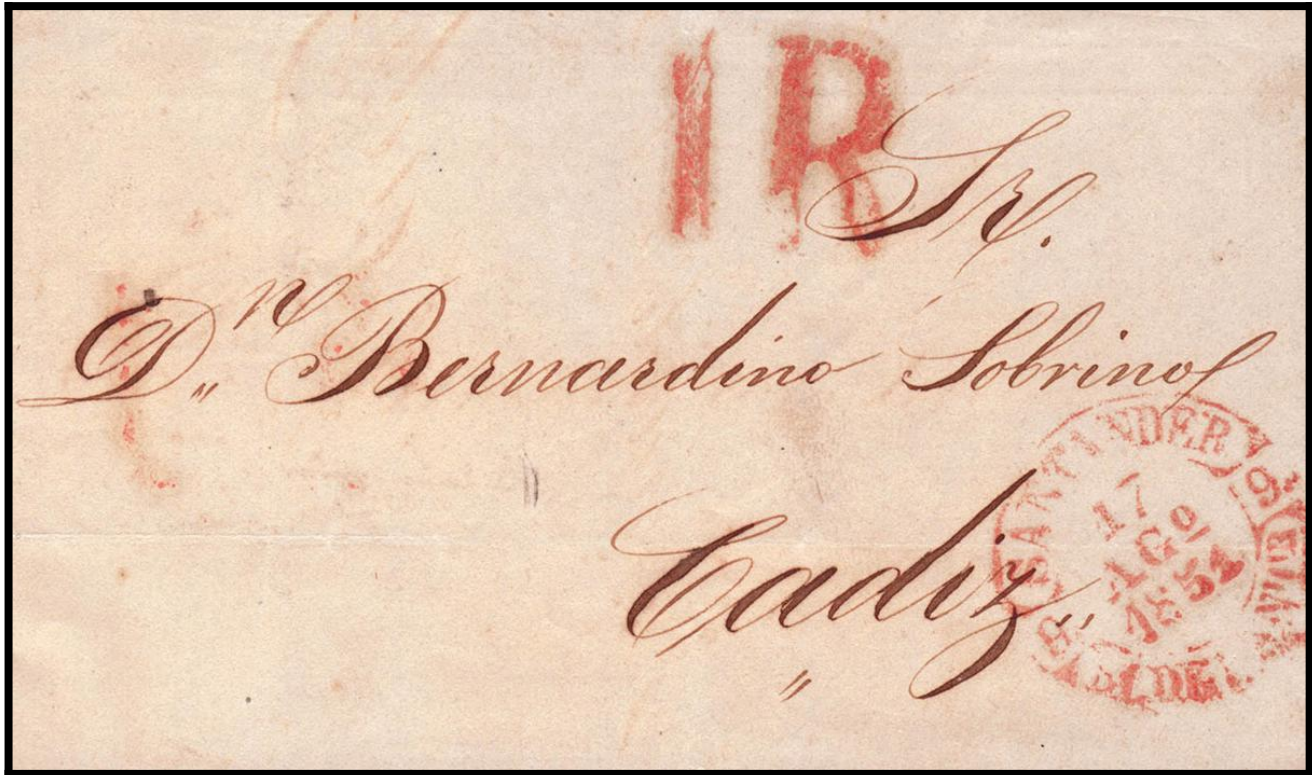 1R
Sr.
Dn Bernardino Sobrino
Cadiz
SANTANDER
17
AGO
1854